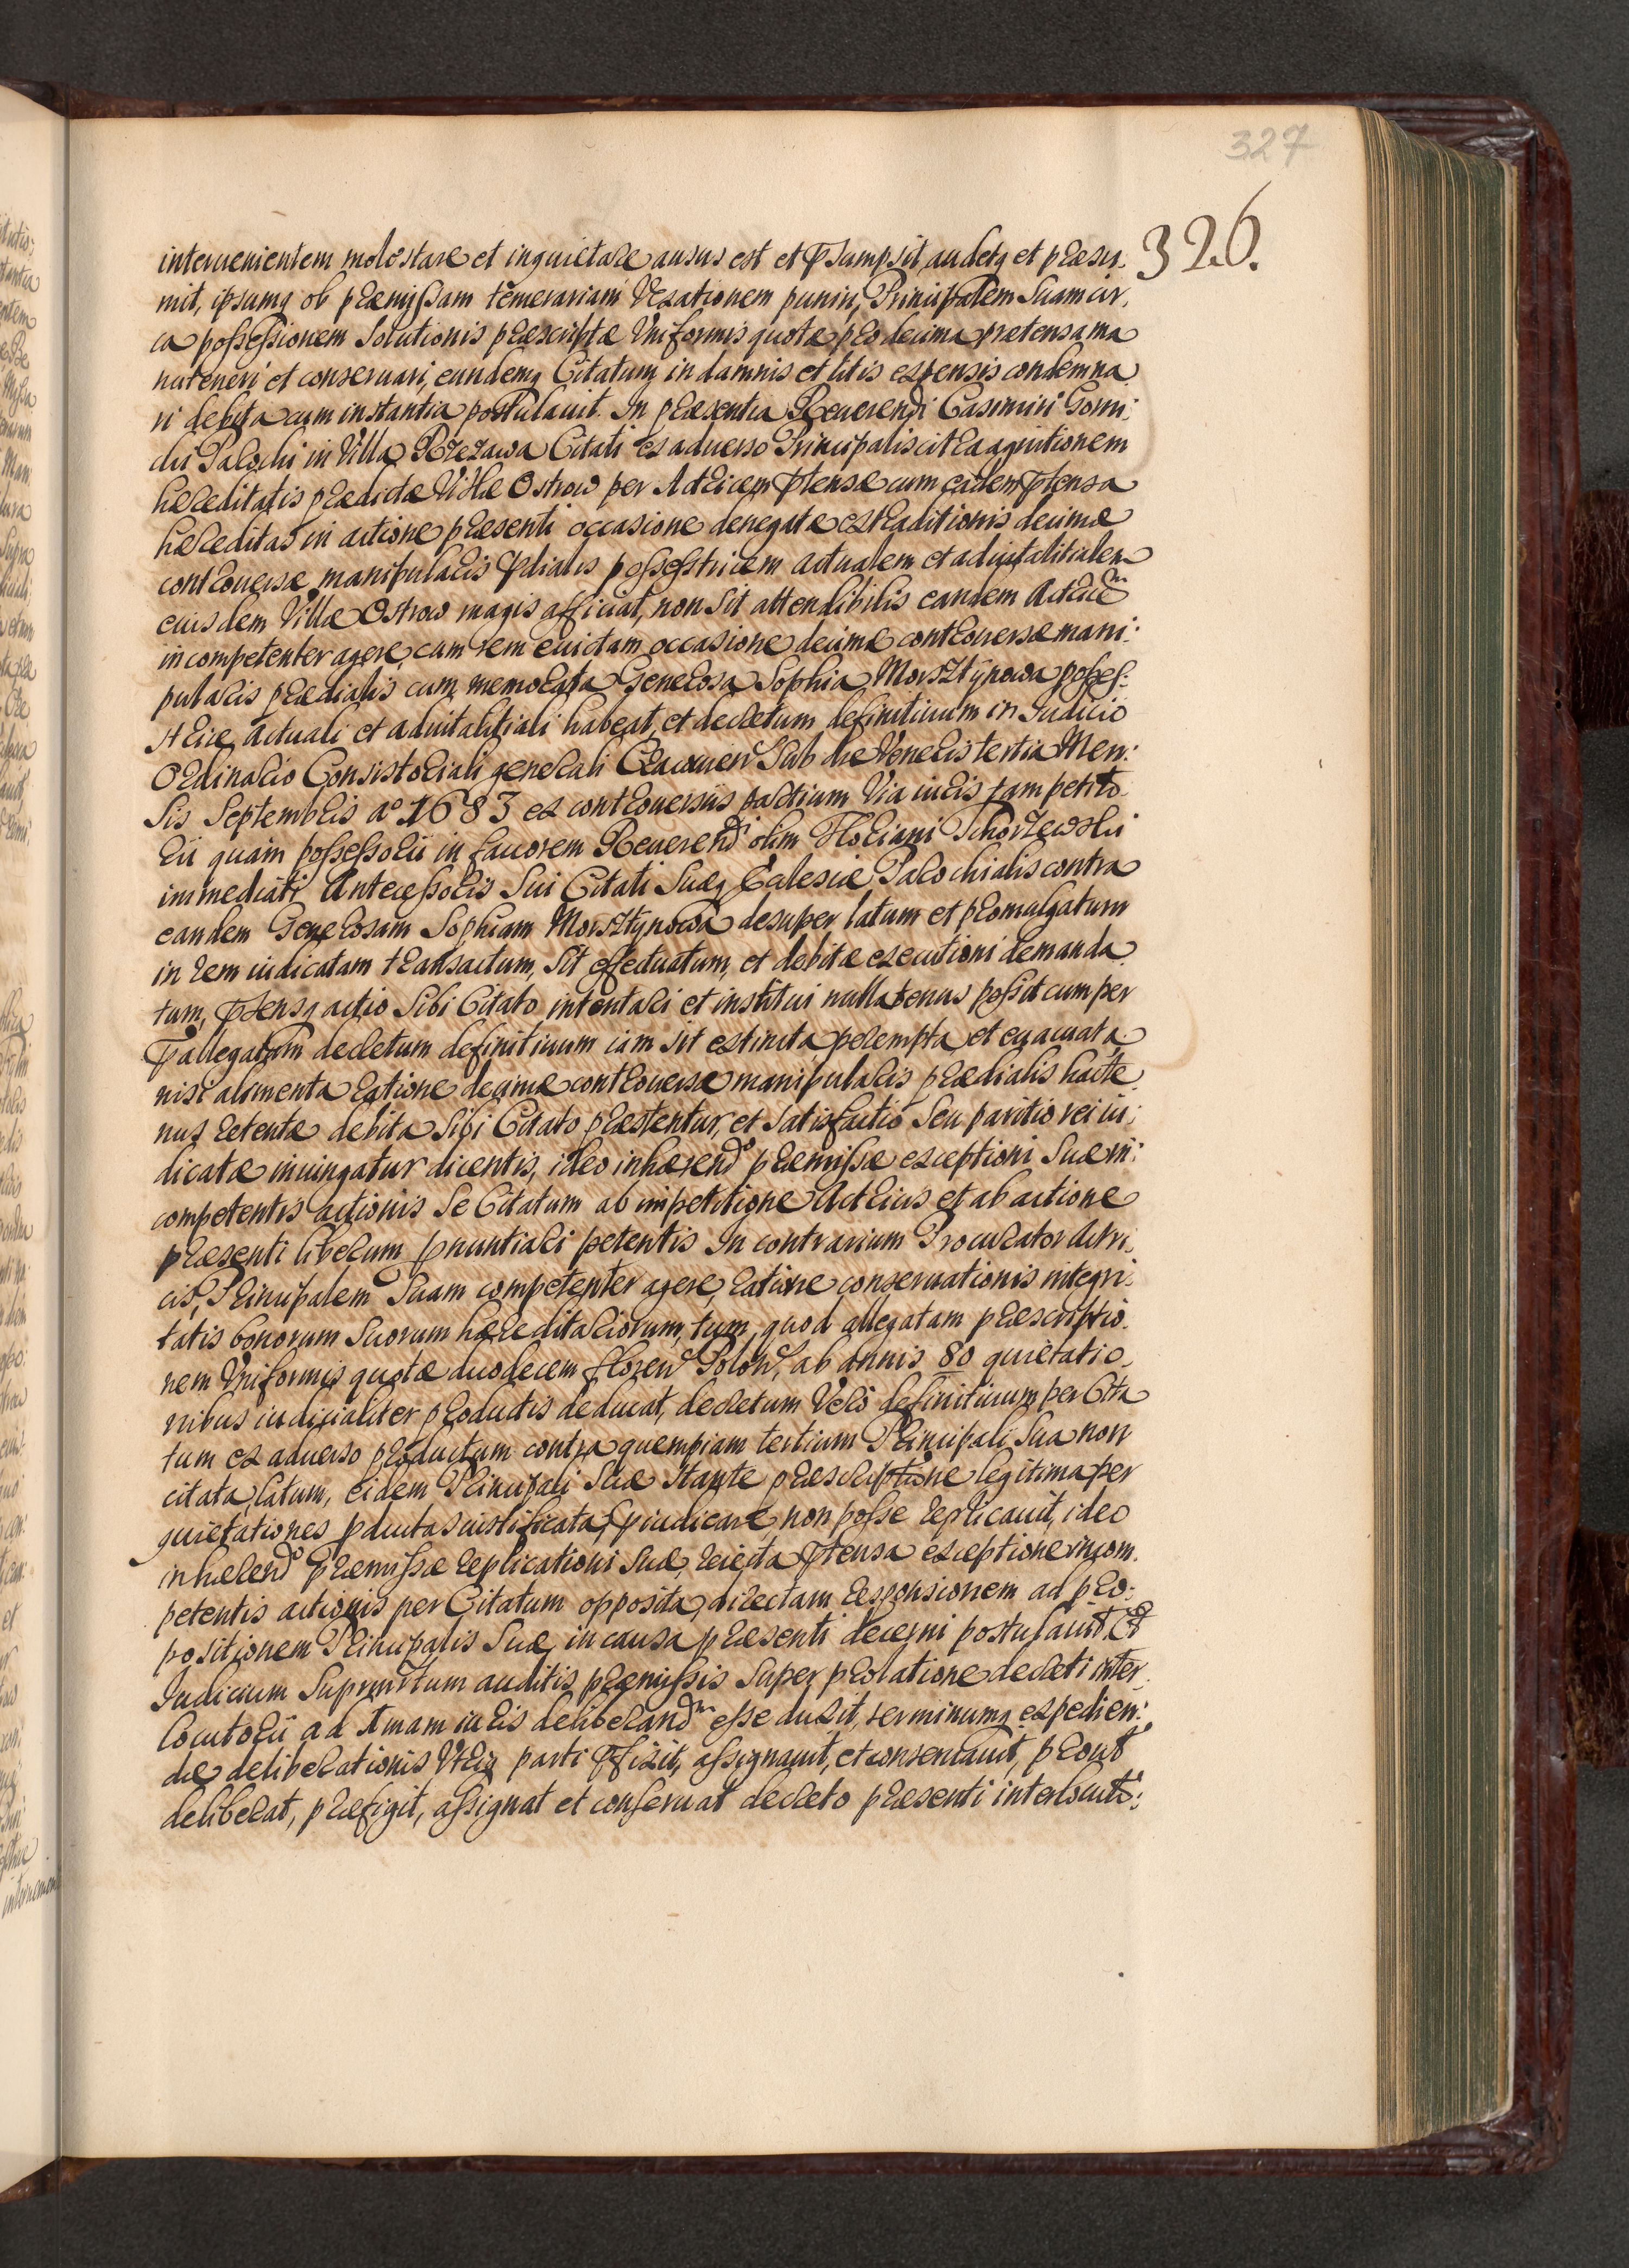 327
326.
intervenientem molestare et inquietare ausus est et p̄sumpsit, audetq et præsu,
mit, ipsumq ob præmissam temerariam Vexationem puniri, Principalem Suam cir,
ca possessionem Solutionis præscriptæ Vniformis quotæ pro decima prætensa ma
nuteneri et conseruari, eundemq Citatum in damnis et litis expensis condemna,
ri debita cum instantia postulauit. In præsentia Reuerendi Casimiri Gorni:
cki Parochi in Villa Rzezawa Citati ex aduerso Principalis citra agnitionem
hæreditatis prædictæ Villæ Ostrow per Actricem p̄tensæ cum eadem p̄tensa
hæreditas in actione præsenti occasione denegatæ extraditionis decimæ
controuersæ manipularis p̄dialis possestricem actualem et aduitalitialem
eiusdem Villæ Ostrow magis afficiat, non sit attendibilis eandem Actricē
incompetenter agere, cum rem euictam occasione decimæ controuersæ mani:
pularis prædialis cum memorata Generosa Sophia Morsztynowa posses:
strice actuali et aduitalitiali habeat, et decretum definitiuum in Iudicio
Ordinario Consistoriali generali Cracouien Sub die Veneris tertia Men:
sis Septembris aº 1683 ex controuersiis partium Via iuris tam petito
rii quam possessorii in fauorem Reuerendi olim Floriani Skorzewski
immediati Antecessoris Sui Citati Suæq Ecclesiæ Parochialis contra
eandem Generosam Sophiam Morsztynowa desuper latum et promulgatum
in rem iudicatam transactum, sit effectuatum, et debitæ executioni demanda
tum, p̄tensq actio Sibi Citato intentari et institui nullatenus possit cum per
p̄allegatum decretum definitiuum iam sit extincta, perempta et euacuata
nisi alimenta ratione decimæ controuersæ manipularis prædialis hacte
nus retentæ debita Sibi Citato præstentur, et Satisfactio Seu paritio rei iu:
dicatæ iniungatur dicentis, ideo inhærendº præmissæ exceptioni Suæ in:
competentis actionis Se Citatum ab impetitione Actricis et ab actione
præsenti liberum p̄nuntiari petentis. In contrarium Procurator Actri,
cis, Principalem Suam competenter agere, ratione conseruationis integri,
tatis bonorum Suorum hæreditariorum, tum, quod allegatam præscriptio
nem Vniformis quotæ duodecem floren Polon, ab annis 80 quietatio,
nibus iudicialiter productis deducat, decretum Vero definitiuum per Cita
tum ex aduerso productum contra quempiam tertium Principali Sua non
citata, latum, eidem Principali Suæ Stante præscriptione legitima per
quietationes p̄ductas iustificata, p̄iudicare non posse replicauit, ideo
inhærendº præmissæ replicationi Suæ, reiecta p̄tensa exceptione incom.
petentis actionis per Citatum opposita, directam responsionem ad pro:
positionem Principalis Suæ in causa præsenti decerni postulauit. Et
Iudicium Supmittum auditis præmissis Super prolatione decreti inter
locutorii ad Amam iuris deliberandm esse duxit, terminumq expedien:
dæ deliberationis Vtriq parti p̄fixit, assignauit, et conseruauit, prout
deliberat, præfigit, assignat et conseruat decreto præsenti interlocuto: